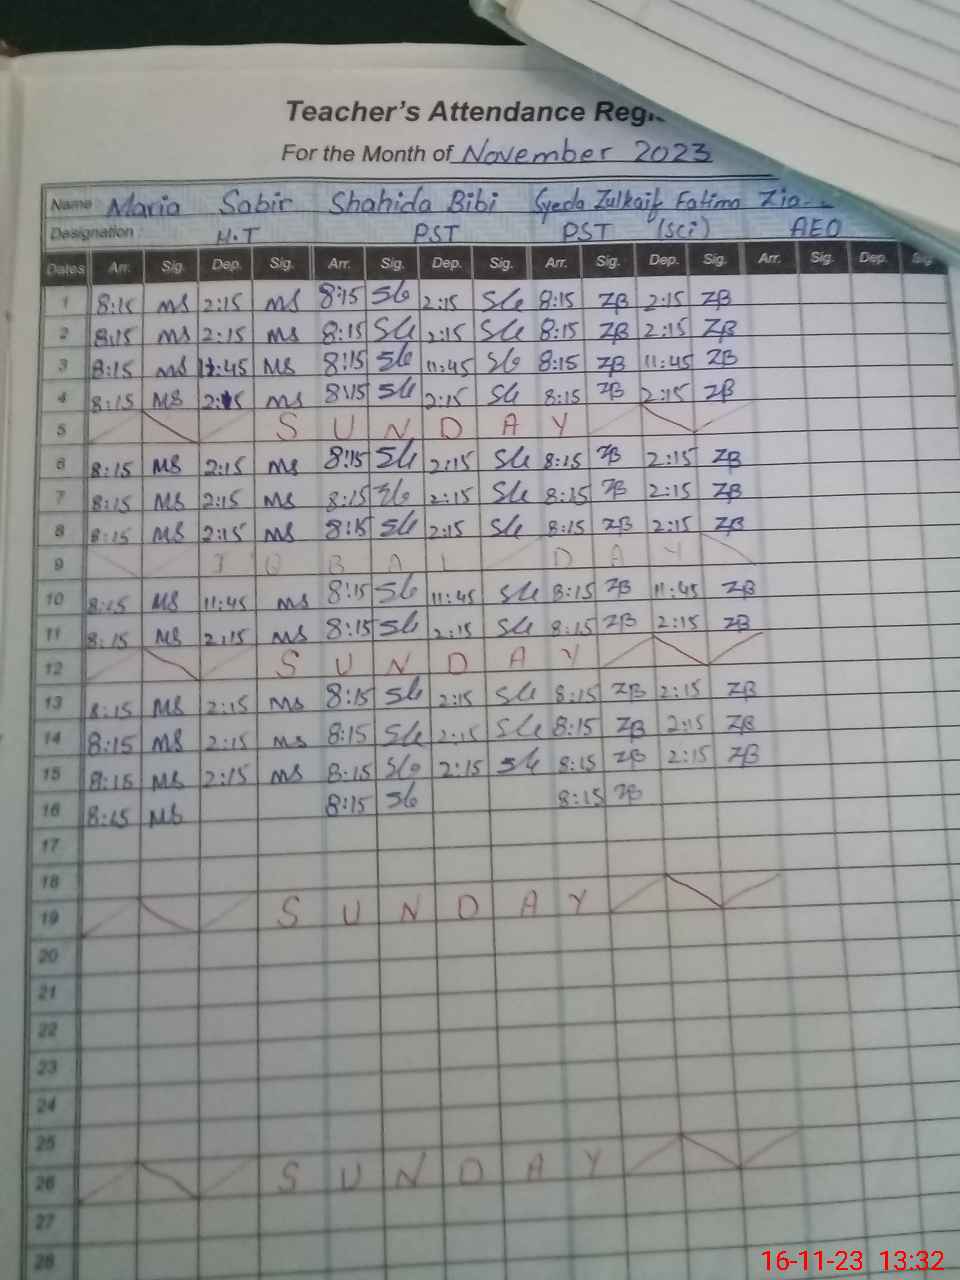 Teacher's Attendance
For the Month of November 2023
Name Maria Sabir Shahida Bibi Syeda Zulkaif Fatima
Designation H.T PST PST (Sci) AEO
Dates Arr. Sig. Dep. Sig. Arr. Sig. Dep. Sig. Arr. Sig. Dep. Sig. Arr. Sig. Dep. Sig.
1 8:15 MS 2:15 MS 8:15 Sb 2:15 Sb 8:15 ZB 2:15 ZB
2 8:15 MS 2:15 MS 8:15 Sb 2:15 Sb 8:15 ZB 2:15 ZB
3 8:15 MS 11:45 MS 8:15 Sb 11:45 Sb 8:15 ZB 11:45 ZB
4 8:15 MS 2:15 MS 8:15 Sb 2:15 Sb 8:15 ZB 2:15 ZB
5 S U N D A Y
6 8:15 MS 2:15 MS 8:15 Sb 2:15 Sb 8:15 ZB 2:15 ZB
7 8:15 MS 2:15 MS 8:15 Sb 2:15 Sb 8:15 ZB 2:15 ZB
8 8:15 MS 2:15 MS 8:15 Sb 2:15 Sb 8:15 ZB 2:15 ZB
9 I Q B A L D A Y
10 8:15 MS 11:45 MS 8:15 Sb 11:45 Sb 8:15 ZB 11:45 ZB
11 8:15 MS 2:15 MS 8:15 Sb 2:15 Sb 8:15 ZB 2:15 ZB
12 S U N D A Y
13 8:15 MS 2:15 MS 8:15 Sb 2:15 Sb 8:15 ZB 2:15 ZB
14 8:15 MS 2:15 MS 8:15 Sb 2:15 Sb 8:15 ZB 2:15 ZB
15 8:15 MS 2:15 MS 8:15 Sb 2:15 Sb 8:15 ZB 2:15 ZB
16 8:15 MS 8:15 Sb 8:15 ZB
17
18
19 S U N D A Y
20
21
22
23
24
25
26 S U N D A Y
27
28
16-11-23 13:32